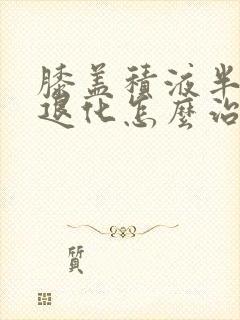 膝盖積液半
退化怎麼治
質